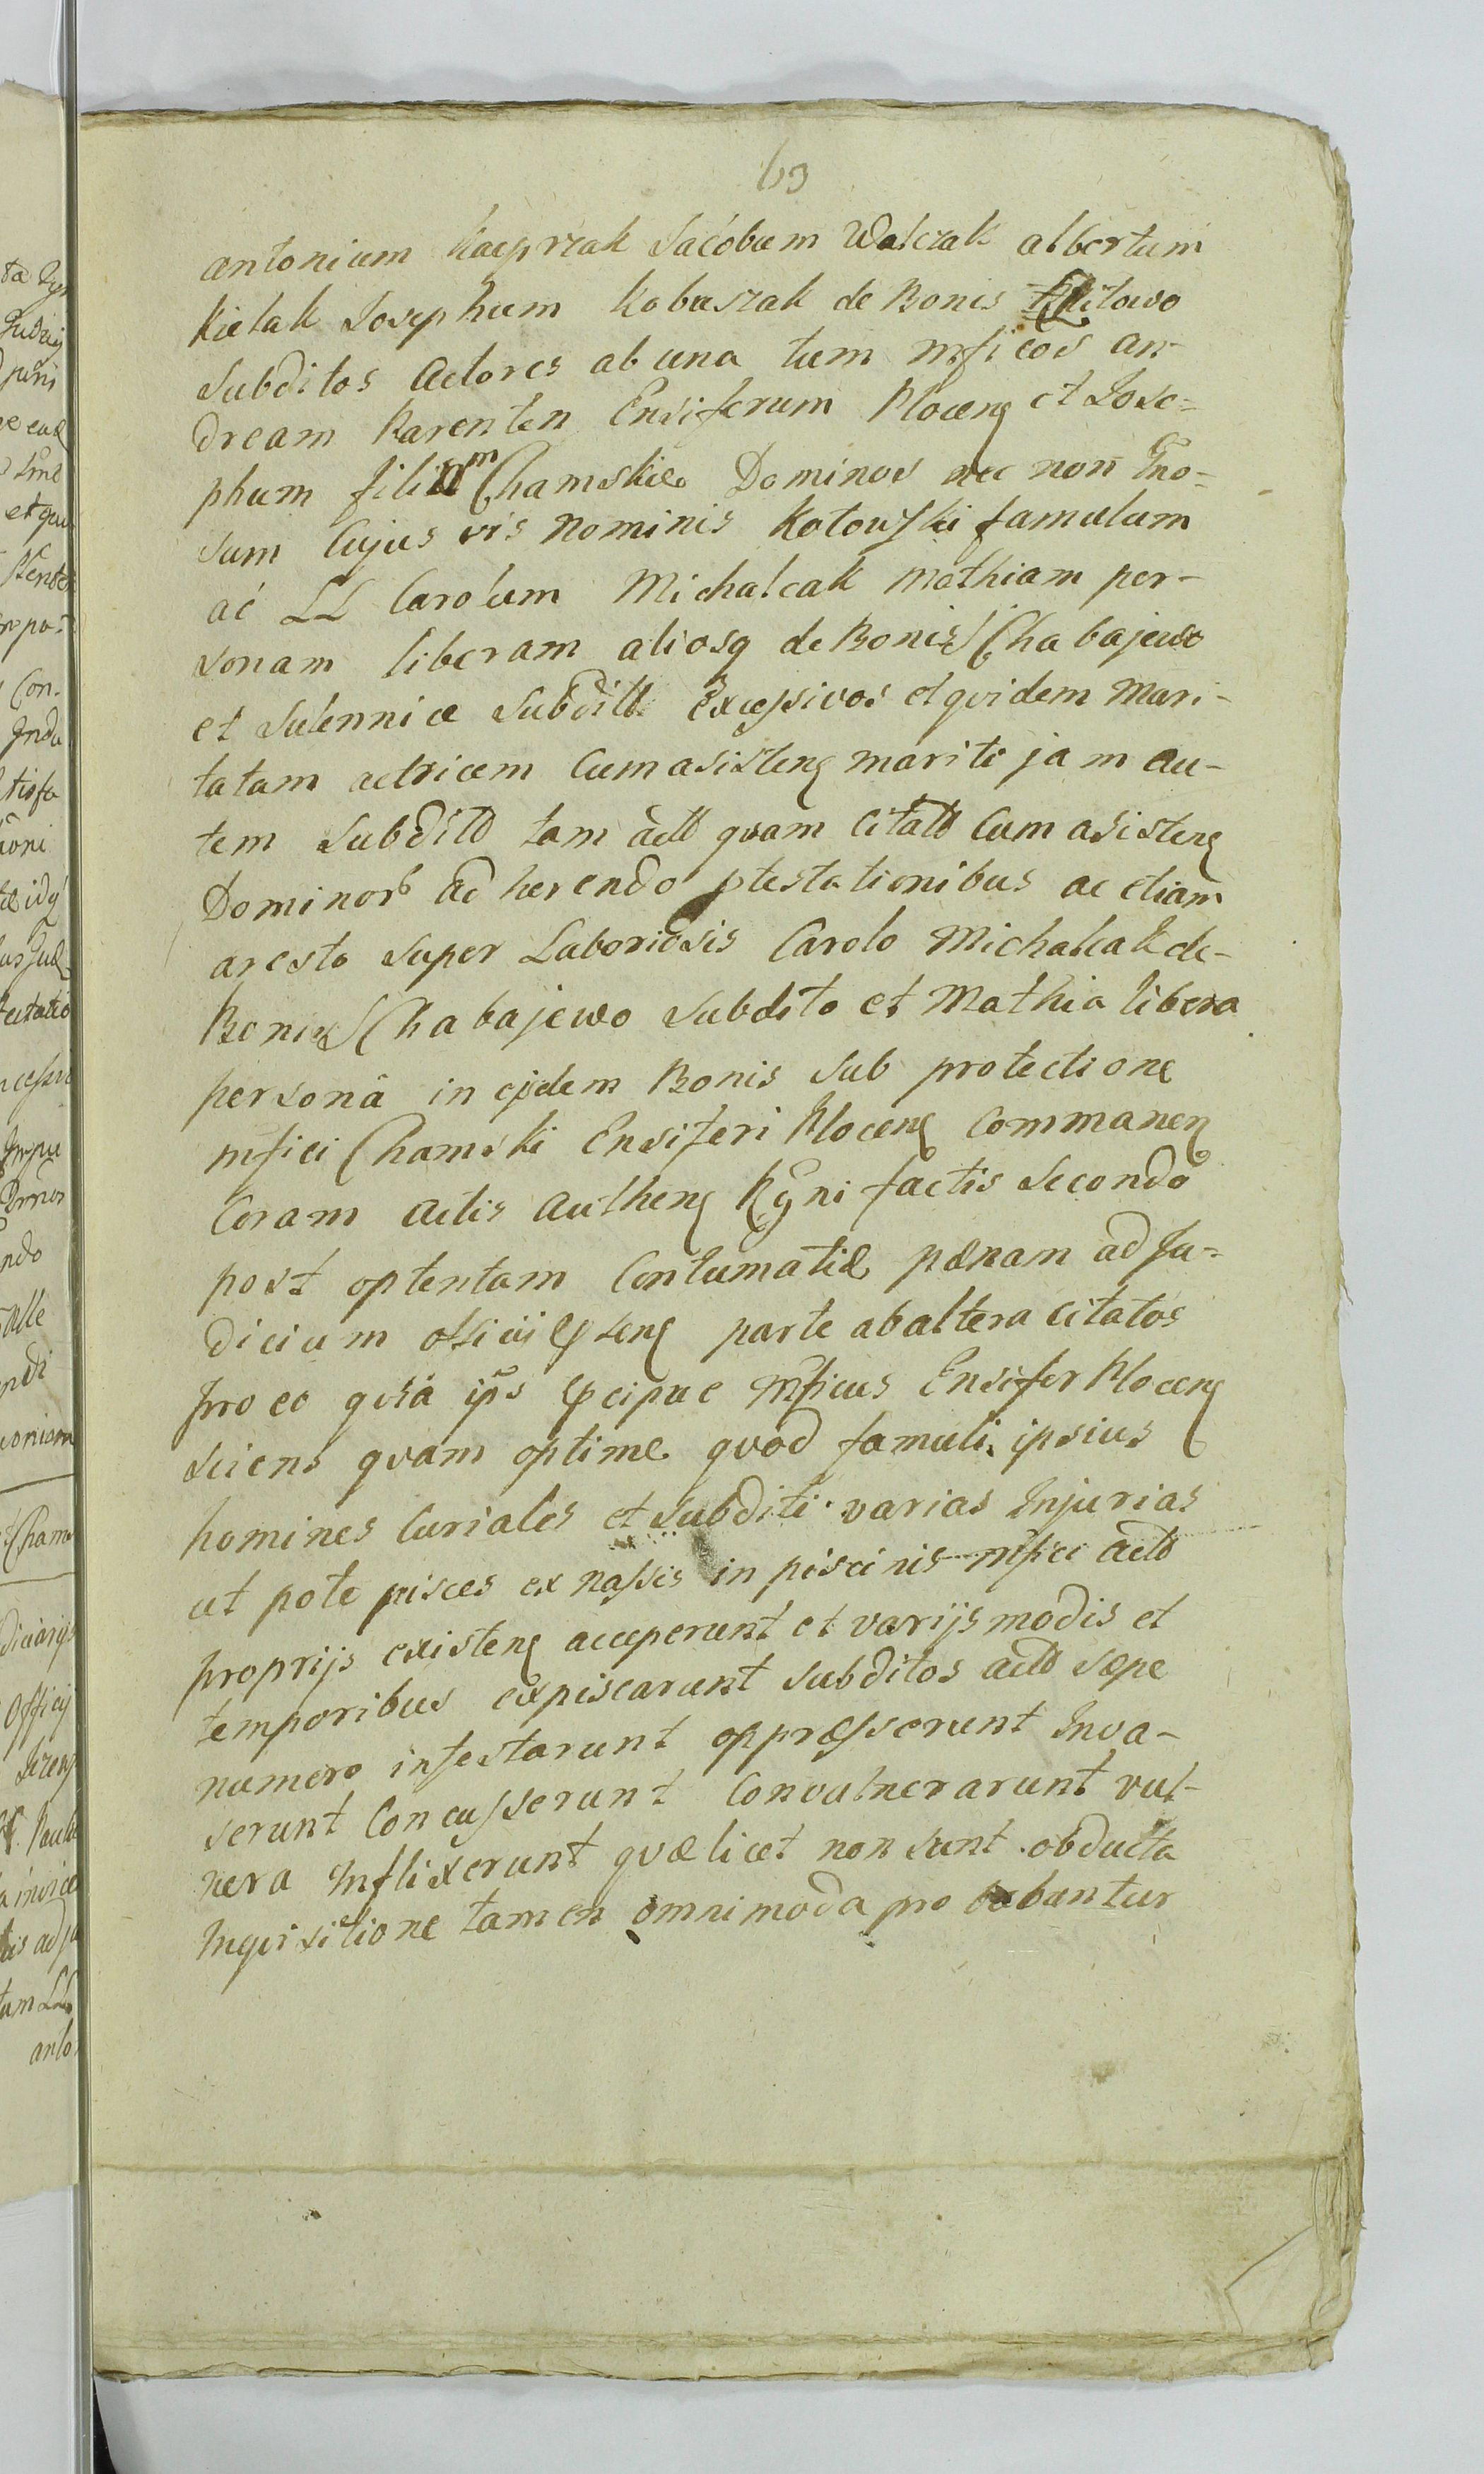 63
antonium Kacprzak Jacobum Walczak albertum
Kielak Josephum Kobuszak de Bonis
Subditos Actores ab una tum mficos An-
dream Parenten Ensiferum Plocen et Jose-
phum filium Chamskie Dominos nec non Gno-
sum Cujus vis Nominis Kotowski famulum
ac LL Carolum Michalcak Mathiam per-
sonam liberam aliosq de Bonis Chabajewo
et Sulennice Subditt Excessivos et qvidem Mari-
tatam actricem Cum asisten mariti jam au-
tem Subditt tam actt qvam Citatt Cum asisten
Dominor adherendo ptestationibus ac etiam
aresto super Laboriosis Carolo Michalcak de-
Bonis Chabajewo Subdito et Mathia libera
persona in ejdem Bonis Sub protectione
mfici Chamski Ensiferi Plocen Commanen
Coram Actis Authen Rgni factis Secondo
post optentam Contumatiæ pænam ad Ju-
dicium officii psen parte ab altera Citatos
pro eo qvia ips pcipue Mficus Ensifer Plocen
sciens qvam optime qvod famuli ipsius
homines Curiales et Subditi varias Injurias
ut pote pisces ex nassis in piscinis mfici actt
proprijs existen acceperunt et varijs modis et
temporibus expiscarunt subditos actt sæpe
numero infestarunt oppræsserunt Inva-
serunt Concusserunt Convulnerarunt vul-
nera Inflixerunt qvæ licet non sunt obducta
Inqvisitione tamen omnimoda pro babuntur